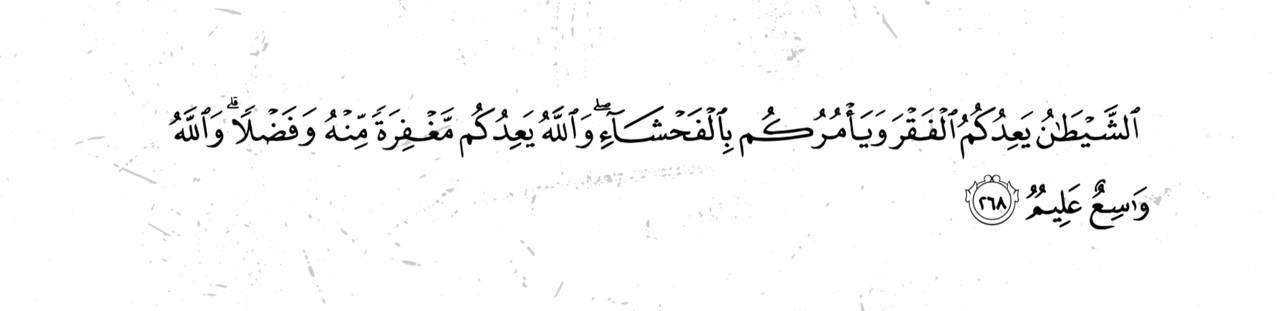 ٱلشَّيْطَٰنُ يَعِدُكُمُ ٱلْفَقْرَ وَيَأْمُرُكُم بِٱلْفَحْشَآءِ ۖ وَٱللَّهُ يَعِدُكُم مَّغْفِرَةً مِّنْهُ وَفَضْلًا ۗ وَٱللَّهُ
وَٰسِعٌ عَلِيمٌ ٢٦٨